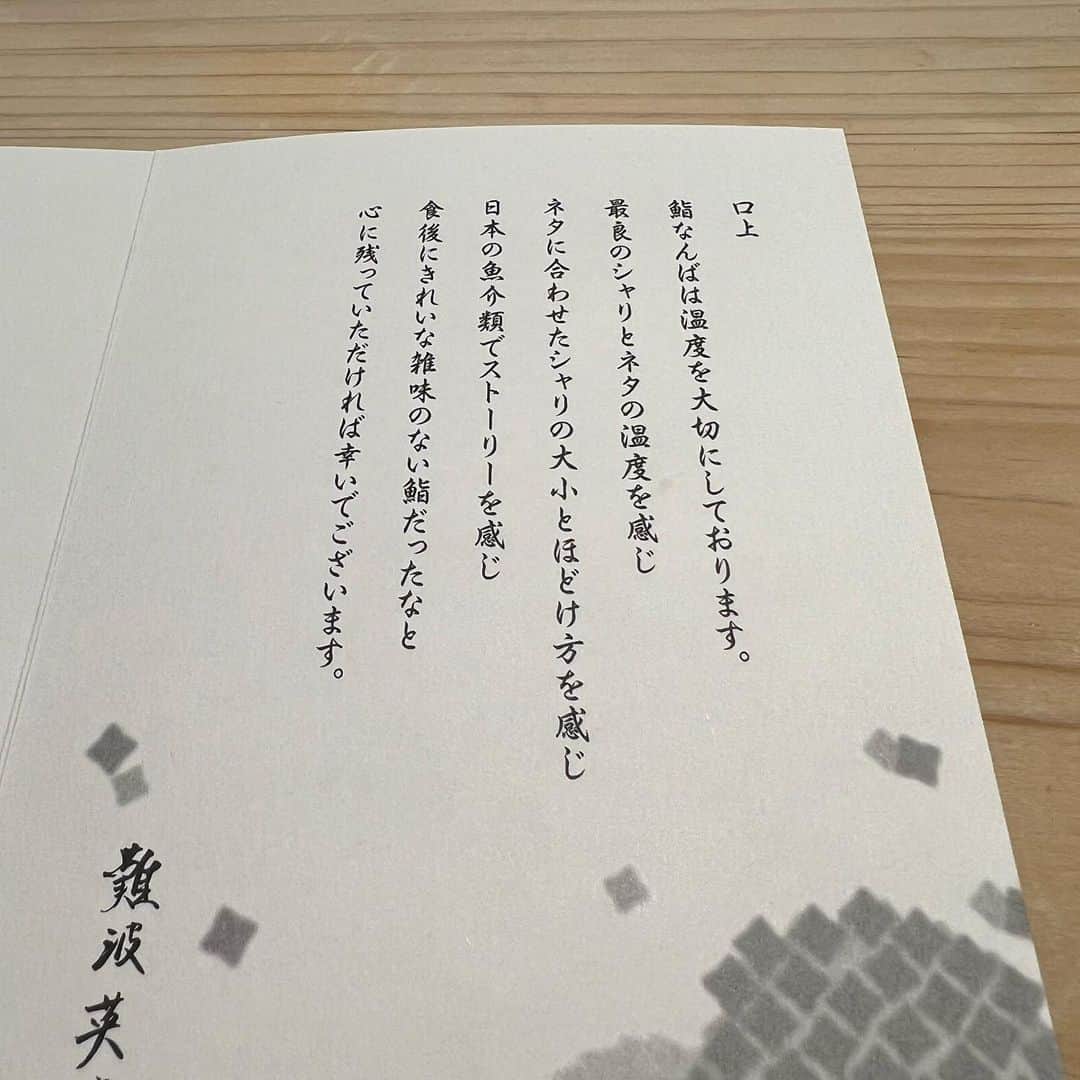 口上
鮨なんばは温度を大切にしております。
最良のシャリとネタの温度を感じ
ネタに合わせたシャリの大小とほどけ方を感じ
日本の魚介類でストーリーを感じ
食後にきれいな雑味のない鮨だったなと
心に残っていただければ幸いでございます。
難波英